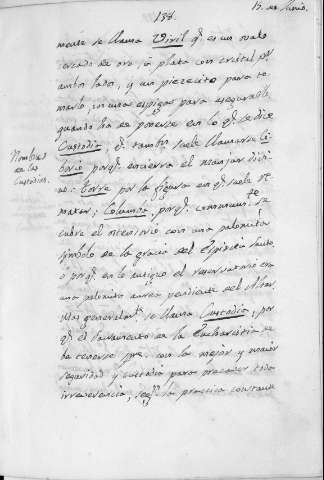 138.
17. de Junio.
mente se llama Viril q.e es un ovalo
cercado de oro, ò plata con cristal p.r
ambos lados, y un piezecito para to-
marlo, con una espiga para asegurarlo
quando ha de ponerse en lo q.e se dice
Custodia: q.e tamb.n suele llamarse Ci-
borio porq.e encierra el manjar divi-
no: Torre por la figura en q.e suele re-
matar: Columna, porq.e comunmen.te se
cubre el interior con una palomita
simbolo de la gracia del Espiritu Santo,
ò porq.e en lo antiguo el reservatorio era
una palomita aurea pendiente del Altar
Mas generalm.te se llama Custodia, por
q.e el Sacramento de la Eucharistia se
ha de tenerse con la mejor, y mayor
seguridad y custodia para precaver toda
irreverencia, seg.n la practica constante
Nombres
de las
Custodias.